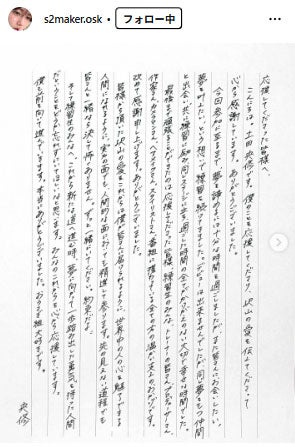 s2maker.osk
フォロー中
応援してくださった皆様へ。
こんにちは、土田央修です。僕のことを応援してくださり、沢山の愛を伝えてくださって
心から感謝しています。ありがとうございました。
今回参加に至るまで、夢を諦めるには十分な時間を過ごしましたが、また皆さんにお会いしたい、
夢を叶えたい、という想いで練習を続けてきました。デビューは出来ませんでしたが、同じ夢をもつ仲間
と出会い、共に練習に励み、同じステージに立ち過ごした時間の全てがかけがえのない大切で幸せな時間でした。
最後まで頑張ることができたのは応援してくださった皆様、練習生のみんな、トレーナーの皆さん、
作家さん、カメラマンさん、ヘアメイクさん、スタイリストさん、番組に携わっている全ての方の温かい支えのおかげです。
改めて感謝申し上げます。ありがとうございます。
皆様から頂いた沢山の愛をこれからは僕が皆さんに届けられるように、世界中の人の心を魅了できる
人間になれるように実力の面でも、人間的な面においても精進して参ります。先の見えない道程でも
皆さんと一緒なら決して怖くありません。ずっと一緒にいてください。約束だよ。
そして練習生のみんなへ。これから新たな道へ進む時、夢に向かって一歩踏み出した勇気を持った人間
だということをどうか忘れずにいてほしいなと思います。みんなのこれからを心から応援しています。
僕も前を向いて進んでいきます。本当にありがとうございました。組大好きです。
央修